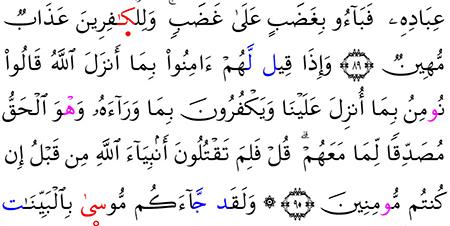 عِبَادِهِۦ فَبَآءُو بِغَضَبٍ عَلَىٰ غَضَبٍۚ وَلِلۡكَٰفِرِينَ عَذَابٞ
مُّهِينٞ ۝٨٩ وَإِذَا قِيل لَّهُمۡ ءَامِنُواْ بِمَا أَنزَلَ ٱللَّهُ قَالُواْ
نُومِنُ بِمَا أُنزِلَ عَلَيۡنَا وَيَكۡفُرُونَ بِمَا وَرَآءَهُۥ وَهۡوَ ٱلۡحَقُّ
مُصَدِّقٗا لِّمَا مَعَهُمۡۗ قُلۡ فَلِمَ تَقۡتُلُونَ أَنۢبِيَآءَ ٱللَّهِ مِن قَبۡلُ إِن
كُنتُم مُّومِنِينَ ۝٩٠ ۞ وَلَقَد جَّآءَكُم مُّوسَىٰ بِٱلۡبَيِّنَٰت